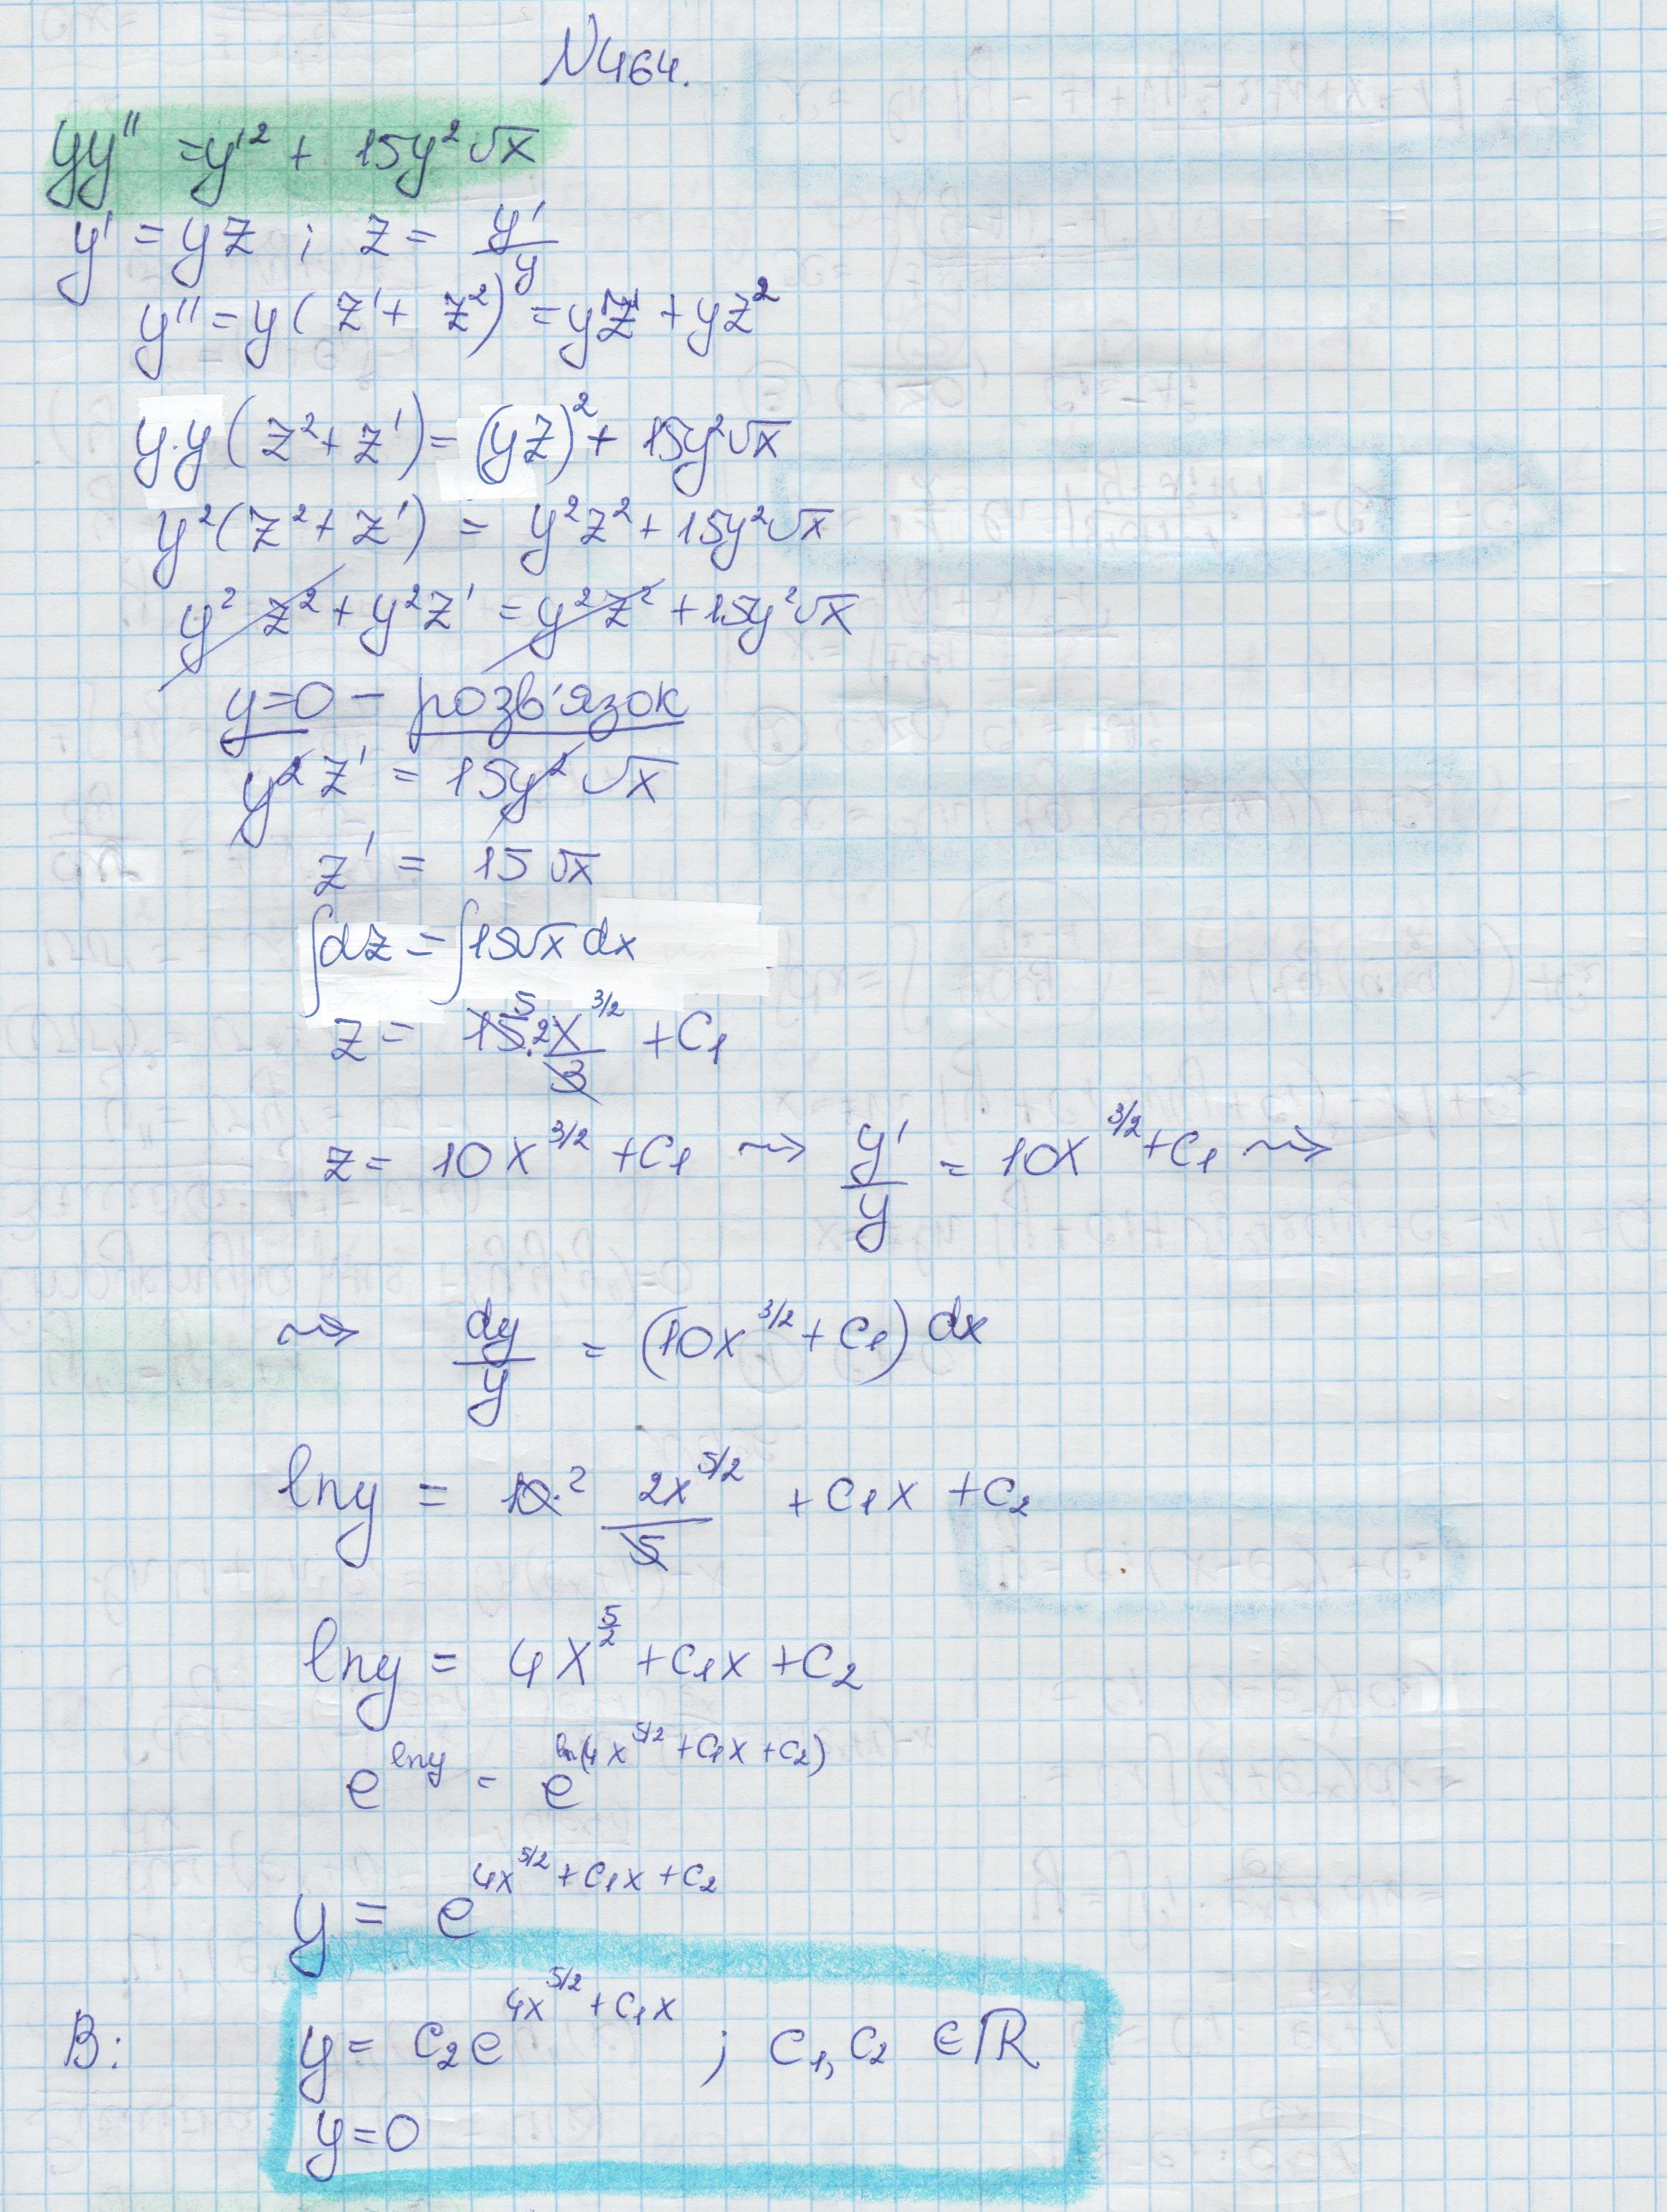 N464.
yy'' = y'² + 15y²√x
y' = yz ; z = y'/y
y'' = y(z' + z²) = yz' + yz²
y·y(z² + z') = (yz)² + 15y²√x
y²(z² + z') = y²z² + 15y²√x
y² z² + y²z' = y²z² + 15y²√x
y=0 – розв'язок
y²z' = 15y²√x
z' = 15√x
∫dz = ∫15√x dx
z = 15⁵·2x^(3/2)/3 + C₁
z = 10x^(3/2) + C₁ ⇝ y'/y = 10x^(3/2) + C₁ ⇝
⇝ dy/y = (10x^(3/2) + C₁) dx
lny = 10·² 2x^(5/2)/5 + C₁x + C₂
lny = 4x^(5/2) + C₁x + C₂
e^(lny) = e^(ln(4x^(5/2) + C₁x + C₂))
y = e^(4x^(5/2) + C₁x + C₂)
В: y = C₂e^(4x^(5/2) + C₁x) ; C₁, C₂ ∈ ℝ
y=0